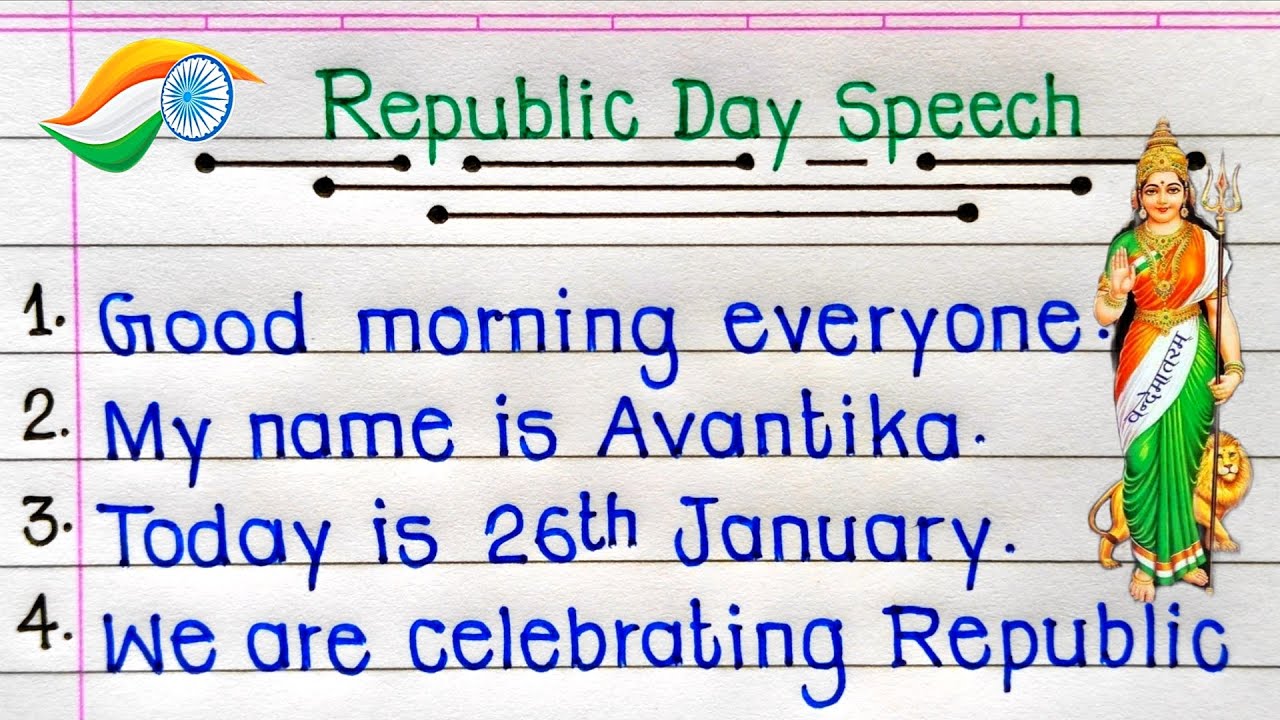 Republic Day Speech
1. Good morning everyone.
2. My name is Avantika.
3. Today is 26th January.
4. We are celebrating Republic
वन्देमातरम्